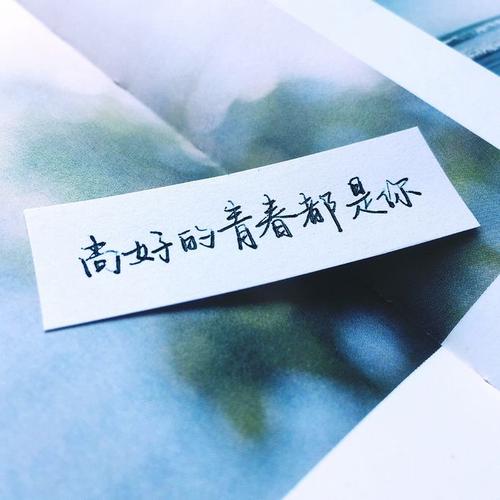 尚好的青春都是你